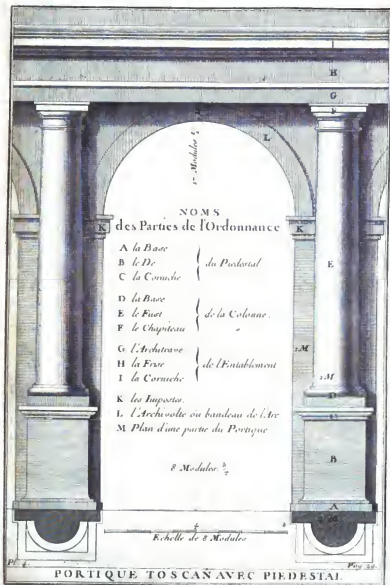 I
H
G
F
L
17 Modules ½
K
K
NOMS
des Parties de l'Ordonnance
A la Base
B le De
C la Corniche
du Piedestal
D la Base
E le Fust
F le Chapiteau
de la Colonne.
G l'Architrave
H la Frise
I la Corniche
de l'Entablement
K les Impostes.
L l'Archivolte ou bandeau de l'Arc
M Plan d'une partie du Portique
E
D
C
B
A
8 Modules
Echelle de 8 Modules
Pl. 4.
Pag. 20.
PORTIQUE TOSCAN AVEC PIEDESTAL